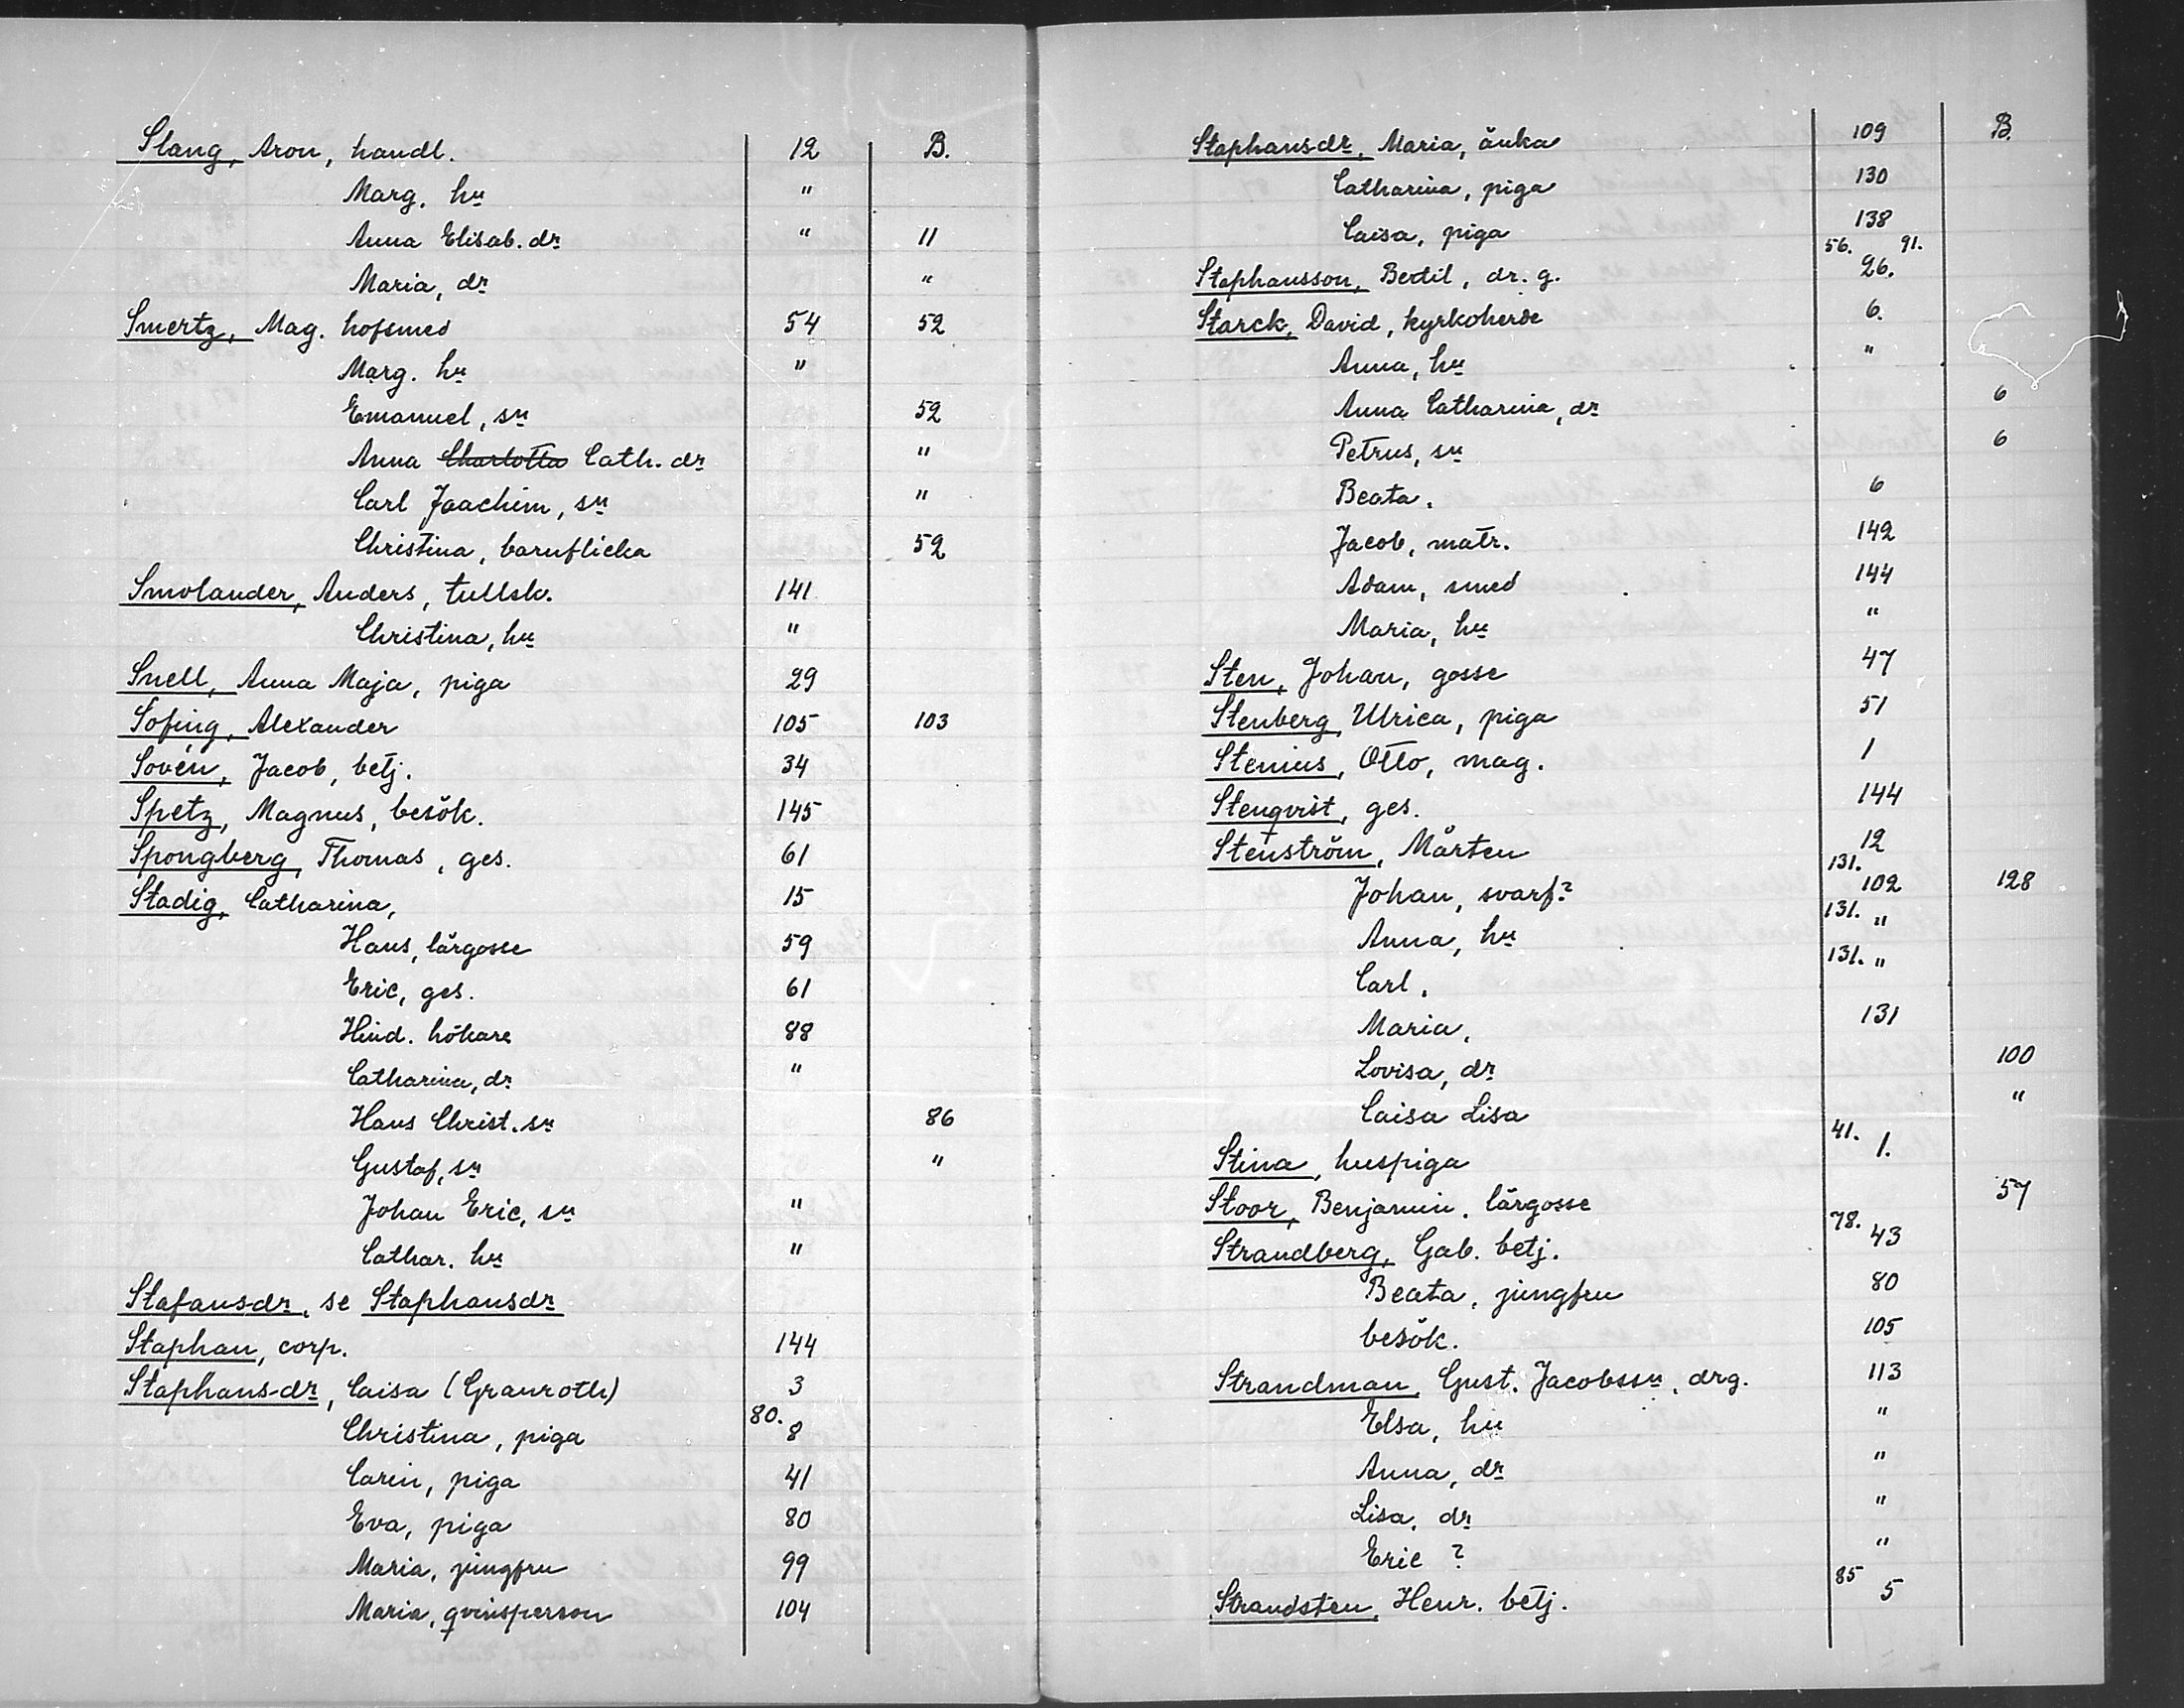 Slang, Aron, handl. 12 B.
Marg. hu "
Anna Elisab. dr " 11
Maria, dr "
Smertz, Mag. hofsmed 54 52
Marg. hu "
Emanuel, sn 52
Anna Charlotta Cath. dr "
Carl Joachim, sn "
Christina, barnflicka 52
Smolander, Anders, tullsk. 141
Christina, hu "
Snell, Anna Maja, piga 29
Sofing, Alexander 105 103
Sovén, Jacob, betj. 34
Spetz, Magnus, besök. 145
Spongberg, Thomas, ges. 61
Stadig, Catharina, 15
Hans, lärgosse 59
Eric, ges. 61
Hind. hökare 88
Catharina, dr "
Hans Christ. sn 86
Gustaf, sn "
Johan Eric, sn "
Cathar. hu "
Stafansdr, se Staphansdr
Staphan, corp. 144
Staphans-dr, Caisa (Granroth) 3
Christina, piga 80. 8
Carin, piga 41
Eva, piga 80
Maria, jungfru 99
Maria, qvinsperson 104
Staphans-dr, Maria, änka 109 B.
Catharina, piga 130
Caisa, piga 138
Stephansson, Bertil, dr. g. 56. 91. 26.
Starck, David, kyrkoherde 6.
Anna, hu "
Anna Catharina, dr 6
Petrus, sn 6
Beata. 6
Jacob, matr. 142
Adam, smed 144
Maria, hu "
Sten, Johan, gosse 47
Stenberg, Ulrica, piga 51
Stenius, Otto, mag. 1
Stenqvist, ges. 144
Stenström, Mårten 12
Johan, svarf? 131. 102 128
Anna, hu 131. "
Carl. 131. "
Maria, 131
Lovisa, dr 100
Caisa Lisa "
Stina, huspiga 41. 1.
Stoor, Benjamin. lärgosse 57
Strandberg, Gab. betj. 78. 43
Beata, jungfru 80
besök. 105
Strandman, Gust. Jacobssn, drg. 113
Elsa, hu "
Anna, dr "
Lisa, dr "
Eric ? "
Strandsten, Henr. betj. 85 5